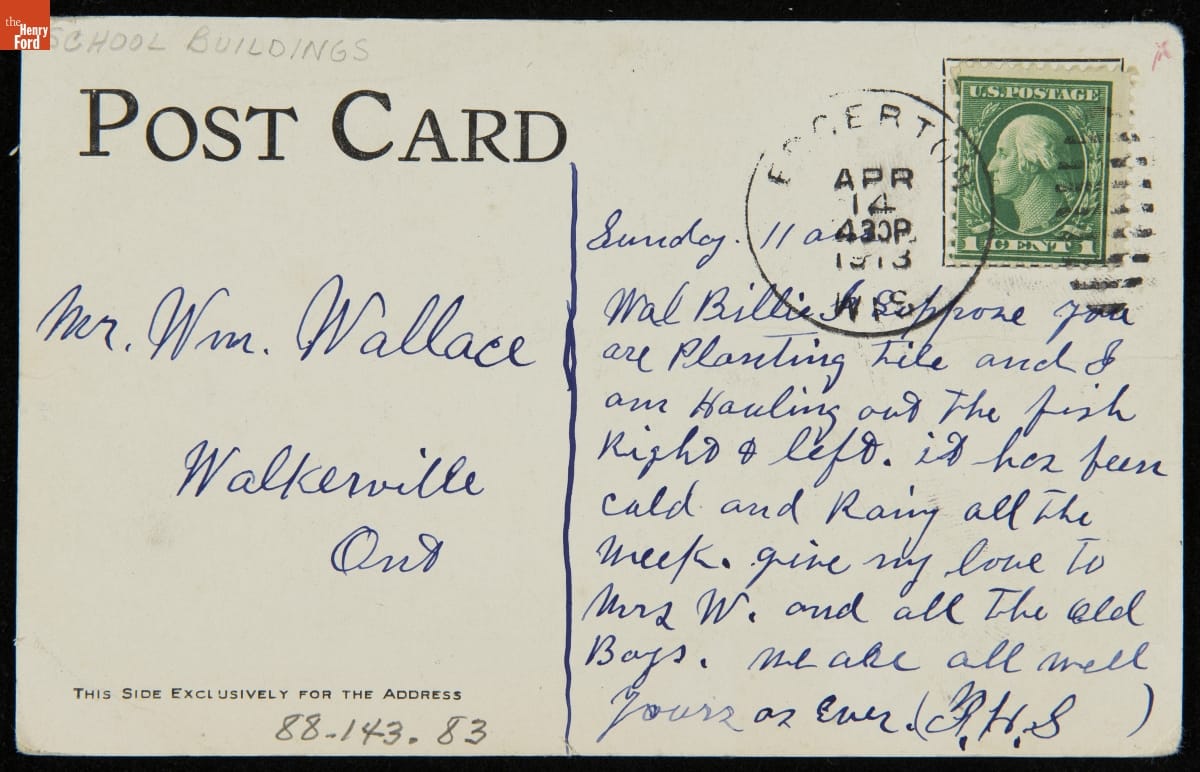 the
Henry
Ford
SCHOOL BUILDINGS
POST CARD
U.S. POSTAGE
1 CENT 1
EDGERTON
APR
14
430P
1913
WIS.
Mr. Wm. Wallace
Walkerville
Ont
THIS SIDE EXCLUSIVELY FOR THE ADDRESS
88-143.83
Sunday. 11 a
Wal Billie I Suppose you
are Planting tile and I
am Hauling out the fish
Right & left. it has been
cald and Rainy all the
Week. give my love to
Mrs W. and all the old
Boys. we are all well
Yours as Ever. (F.H.S )